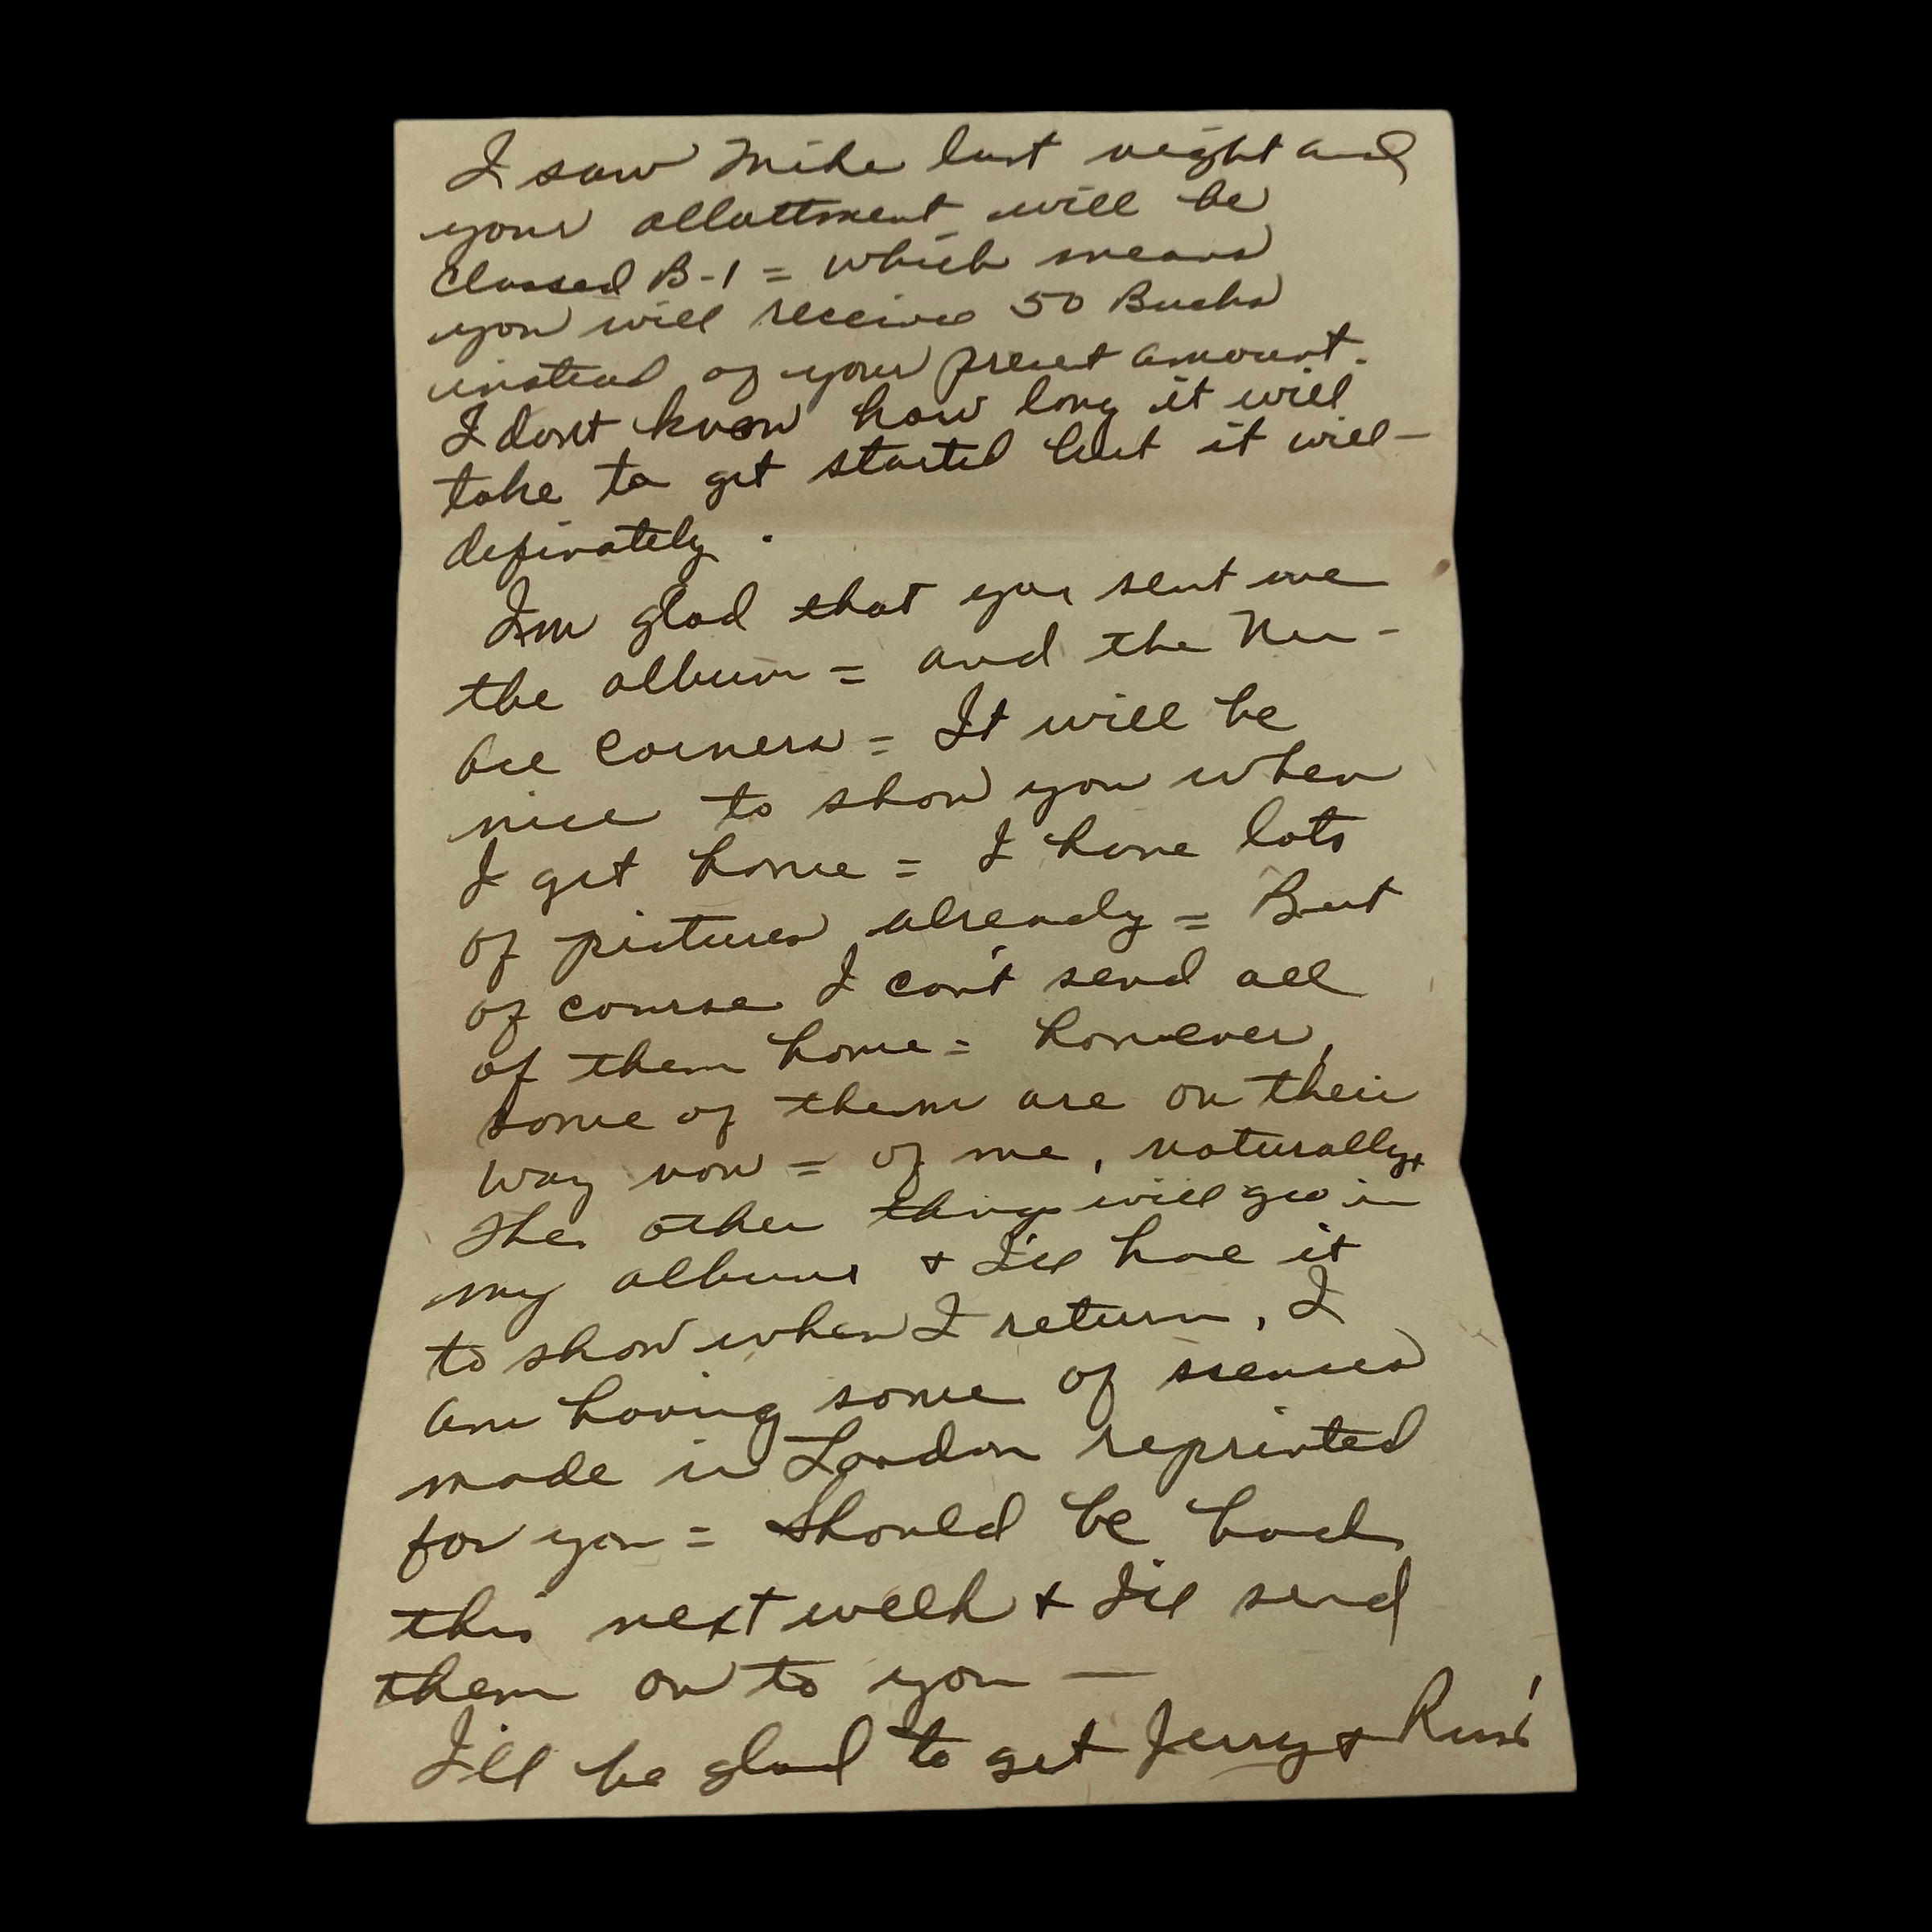 I saw Mike last night and
your allottment will be
Classed B-1 = which means
you will receive 50 Bucks
instead of your present amount.
I don't know how long it will
take to get started but it will -
definately.
I'm glad that you sent me
the album = and the Nu -
Ace Corners = It will be
nice to show you when
I get home = I have lots
of pictures already = But
of course I can't send all
of them home = however,
some of them are on their
way now = of me, naturally,
The other things will go in
my album & I'll have it
to show when I return, I
am having some of scenes
made in London reprinted
for you = Should be back
this next week & I'll send
them on to you —
I'll be glad to get Jerry & Russ'